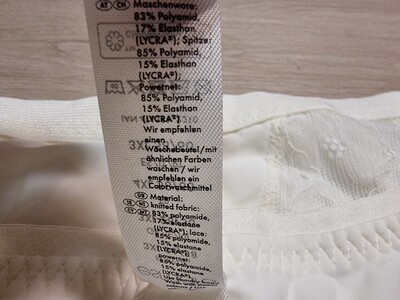 AT CH Maschenware:
83% Polyamid,
17% Elasthan
(LYCRA®); Spitze:
85% Polyamid,
15% Elasthan
(LYCRA®);
Powernet:
85% Polyamid,
15% Elasthan
(LYCRA®)
Wir empfehlen
einen
Wäschebeutel/mit
ähnlichen Farben
waschen / wir
empfehlen ein
Colorwaschmittel
GB Material:
knitted fabric:
83% polyamide,
17% elastane
(LYCRA®); lace:
85% polyamide,
15% elastane
(LYCRA®);
powernet:
85% polyamide,
15% elastane
(LYCRA®)